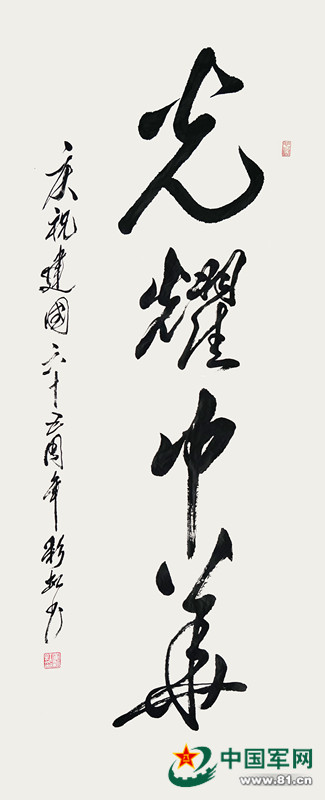 光耀中華
庆祝建國六十五周年 彩虹书
中国军网
www.81.cn